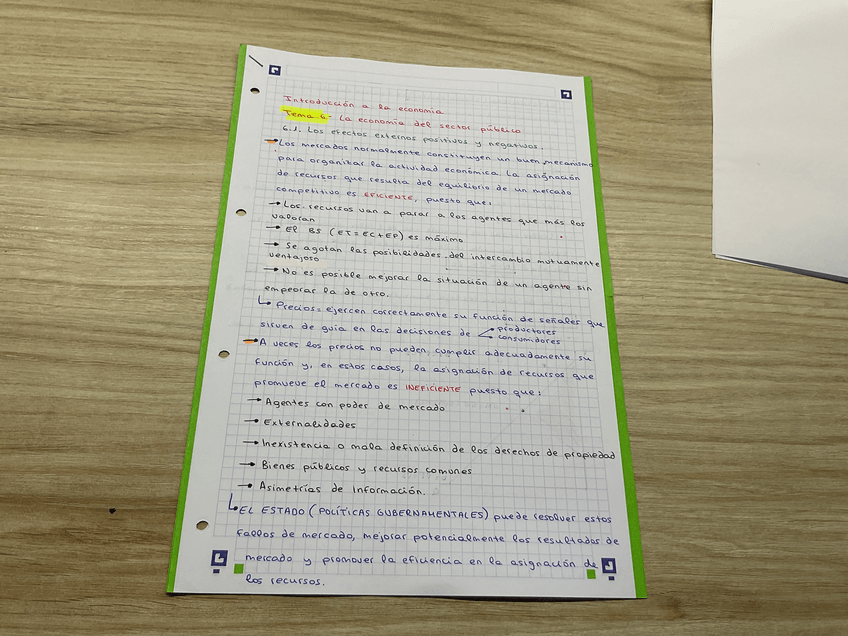 Introducción a la economía
Tema 6: La economía del sector público
6.1. Los efectos externos positivos y negativos.
Los mercados normalmente constituyen un buen mecanismo
para organizar la actividad económica. La asignación
de recursos que resulta del equilibrio de un mercado
competitivo es EFICIENTE, puesto que:
→ Los recursos van a parar a los agentes que más los
valoran
→ El BS (ET=EC+EP) es máximo
→ Se agotan las posibilidades del intercambio mutuamente
ventajoso
→ No es posible mejorar la situación de un agente sin
empeorar la de otro.
↳ Precios = ejercen correctamente su función de señales que
sirven de guía en las decisiones de productores
consumidores
A veces los precios no pueden cumplir adecuadamente su
función y, en estos casos, la asignación de recursos que
promueve el mercado es INEFICIENTE puesto que:
→ Agentes con poder de mercado
→ Externalidades
→ Inexistencia o mala definición de los derechos de propiedad
→ Bienes públicos y recursos comunes
→ Asimetrías de información.
↳ EL ESTADO (POLÍTICAS GUBERNAMENTALES) puede resolver estos
fallos de mercado, mejorar potencialmente los resultados de
mercado y promover la eficiencia en la asignación de
los recursos.